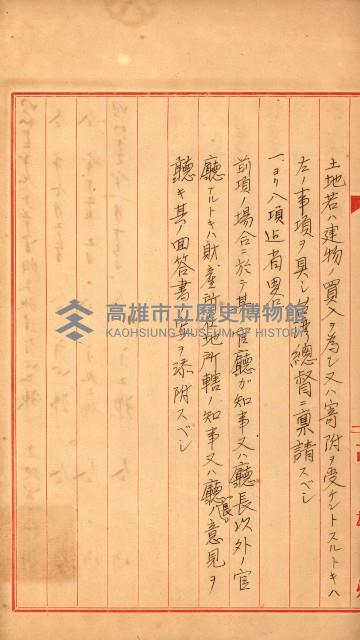 土地若ハ建物ノ買入ヲ為シ又ハ寄附ヲ受ケントスルトキハ
左ノ事項ヲ具シ台湾總督ニ稟請スベシ
一、ヨリ八項迄省畧
前項ノ場合ニ於テ其官廳ガ知事又ハ廳長以外ノ官
廳ナルトキハ財産所在地所轄ノ知事又ハ廳長ノ意見ヲ
聽キ其ノ回答書ノ写ヲ添附スベシ
高雄市立歷史博物館
KAOHSIUNG MUSEUM OF HISTORY